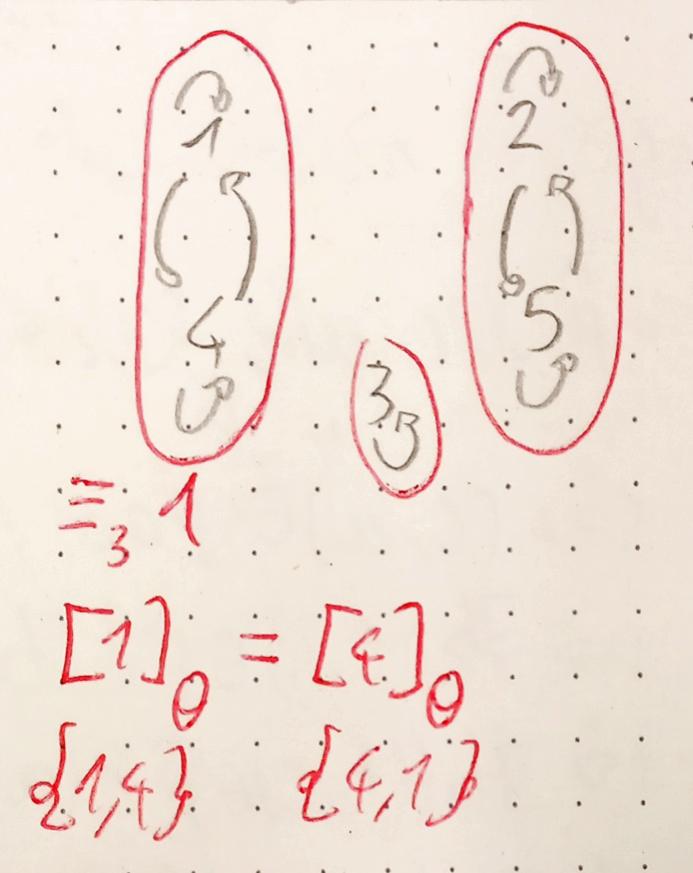 1 2
4 5
3
≡₃ 1
[1]_θ = [4]_θ
{1,4} {4,1}